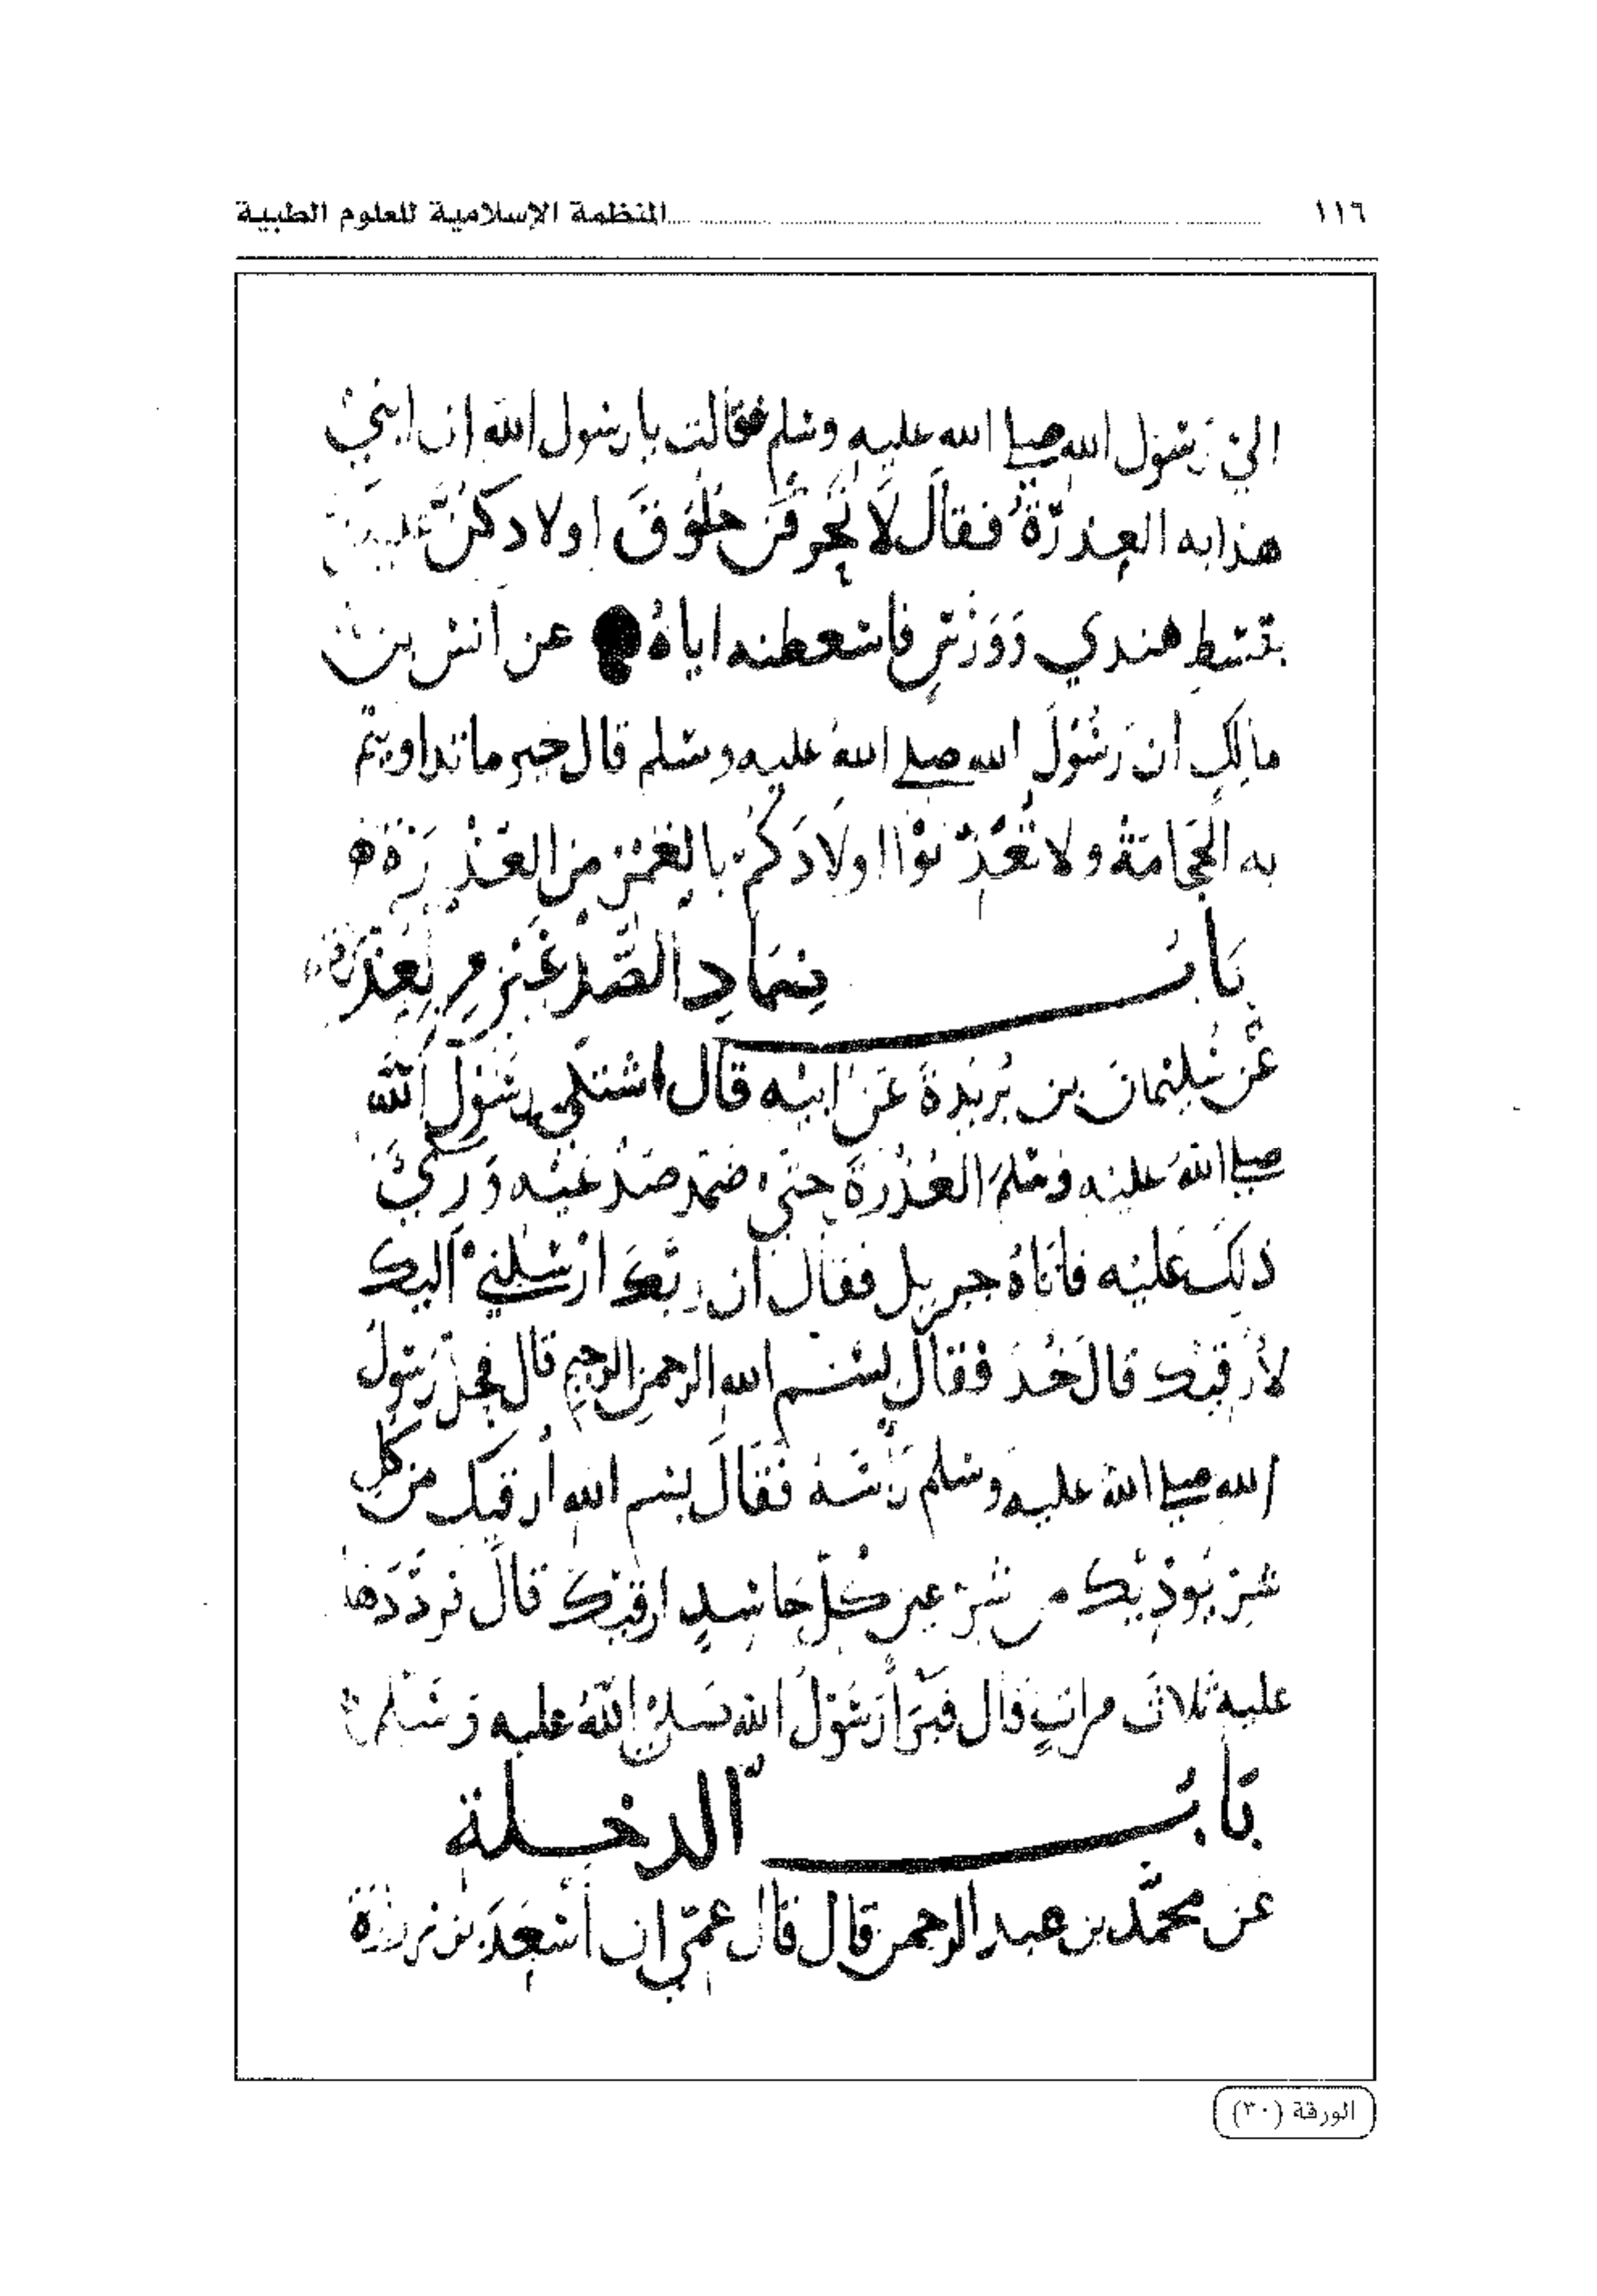 ١١٦ المنظمة الإسلامية للعلوم الطبية
الى رسول الله صلى الله عليه وسلم فقالت يا رسول الله ان ابني
هذا به العذرة فقال لا تحرقن حلوق اولادكن عليكن
بقسط هندي وورس فاسعطنه اياه عن انس بن
مالك ان رسول الله صلى الله عليه وسلم قال خير ما تداويتم
به الحجامة ولا تعذبوا اولادكم بالغمز من العذرة
باب ضماد الصدغين من العذرة
عن سليمان بن بريدة عن ابيه قال اشتكى رسول الله
صلى الله عليه وسلم العذرة حتى ضمد صدغيه ورئي
ذلك عليه فاتاه جبريل فقال ان ربك ارسلني اليك
لارقيك قال خذ فقال بسم الله الرحمن الرحيم قال رسول
الله صلى الله عليه وسلم رأسه فقال بسم الله أرقيك من كل
شر يوذيك من شر عين كل حاسد ارقيك قال فرددها
عليه ثلاث مرات قال فبرأ رسول الله صلى الله عليه وسلم
باب الدخلة
عن محمد بن عبد الرحمن قال قال عمي ان أسعد بن زرارة
الورقة (٣٠)